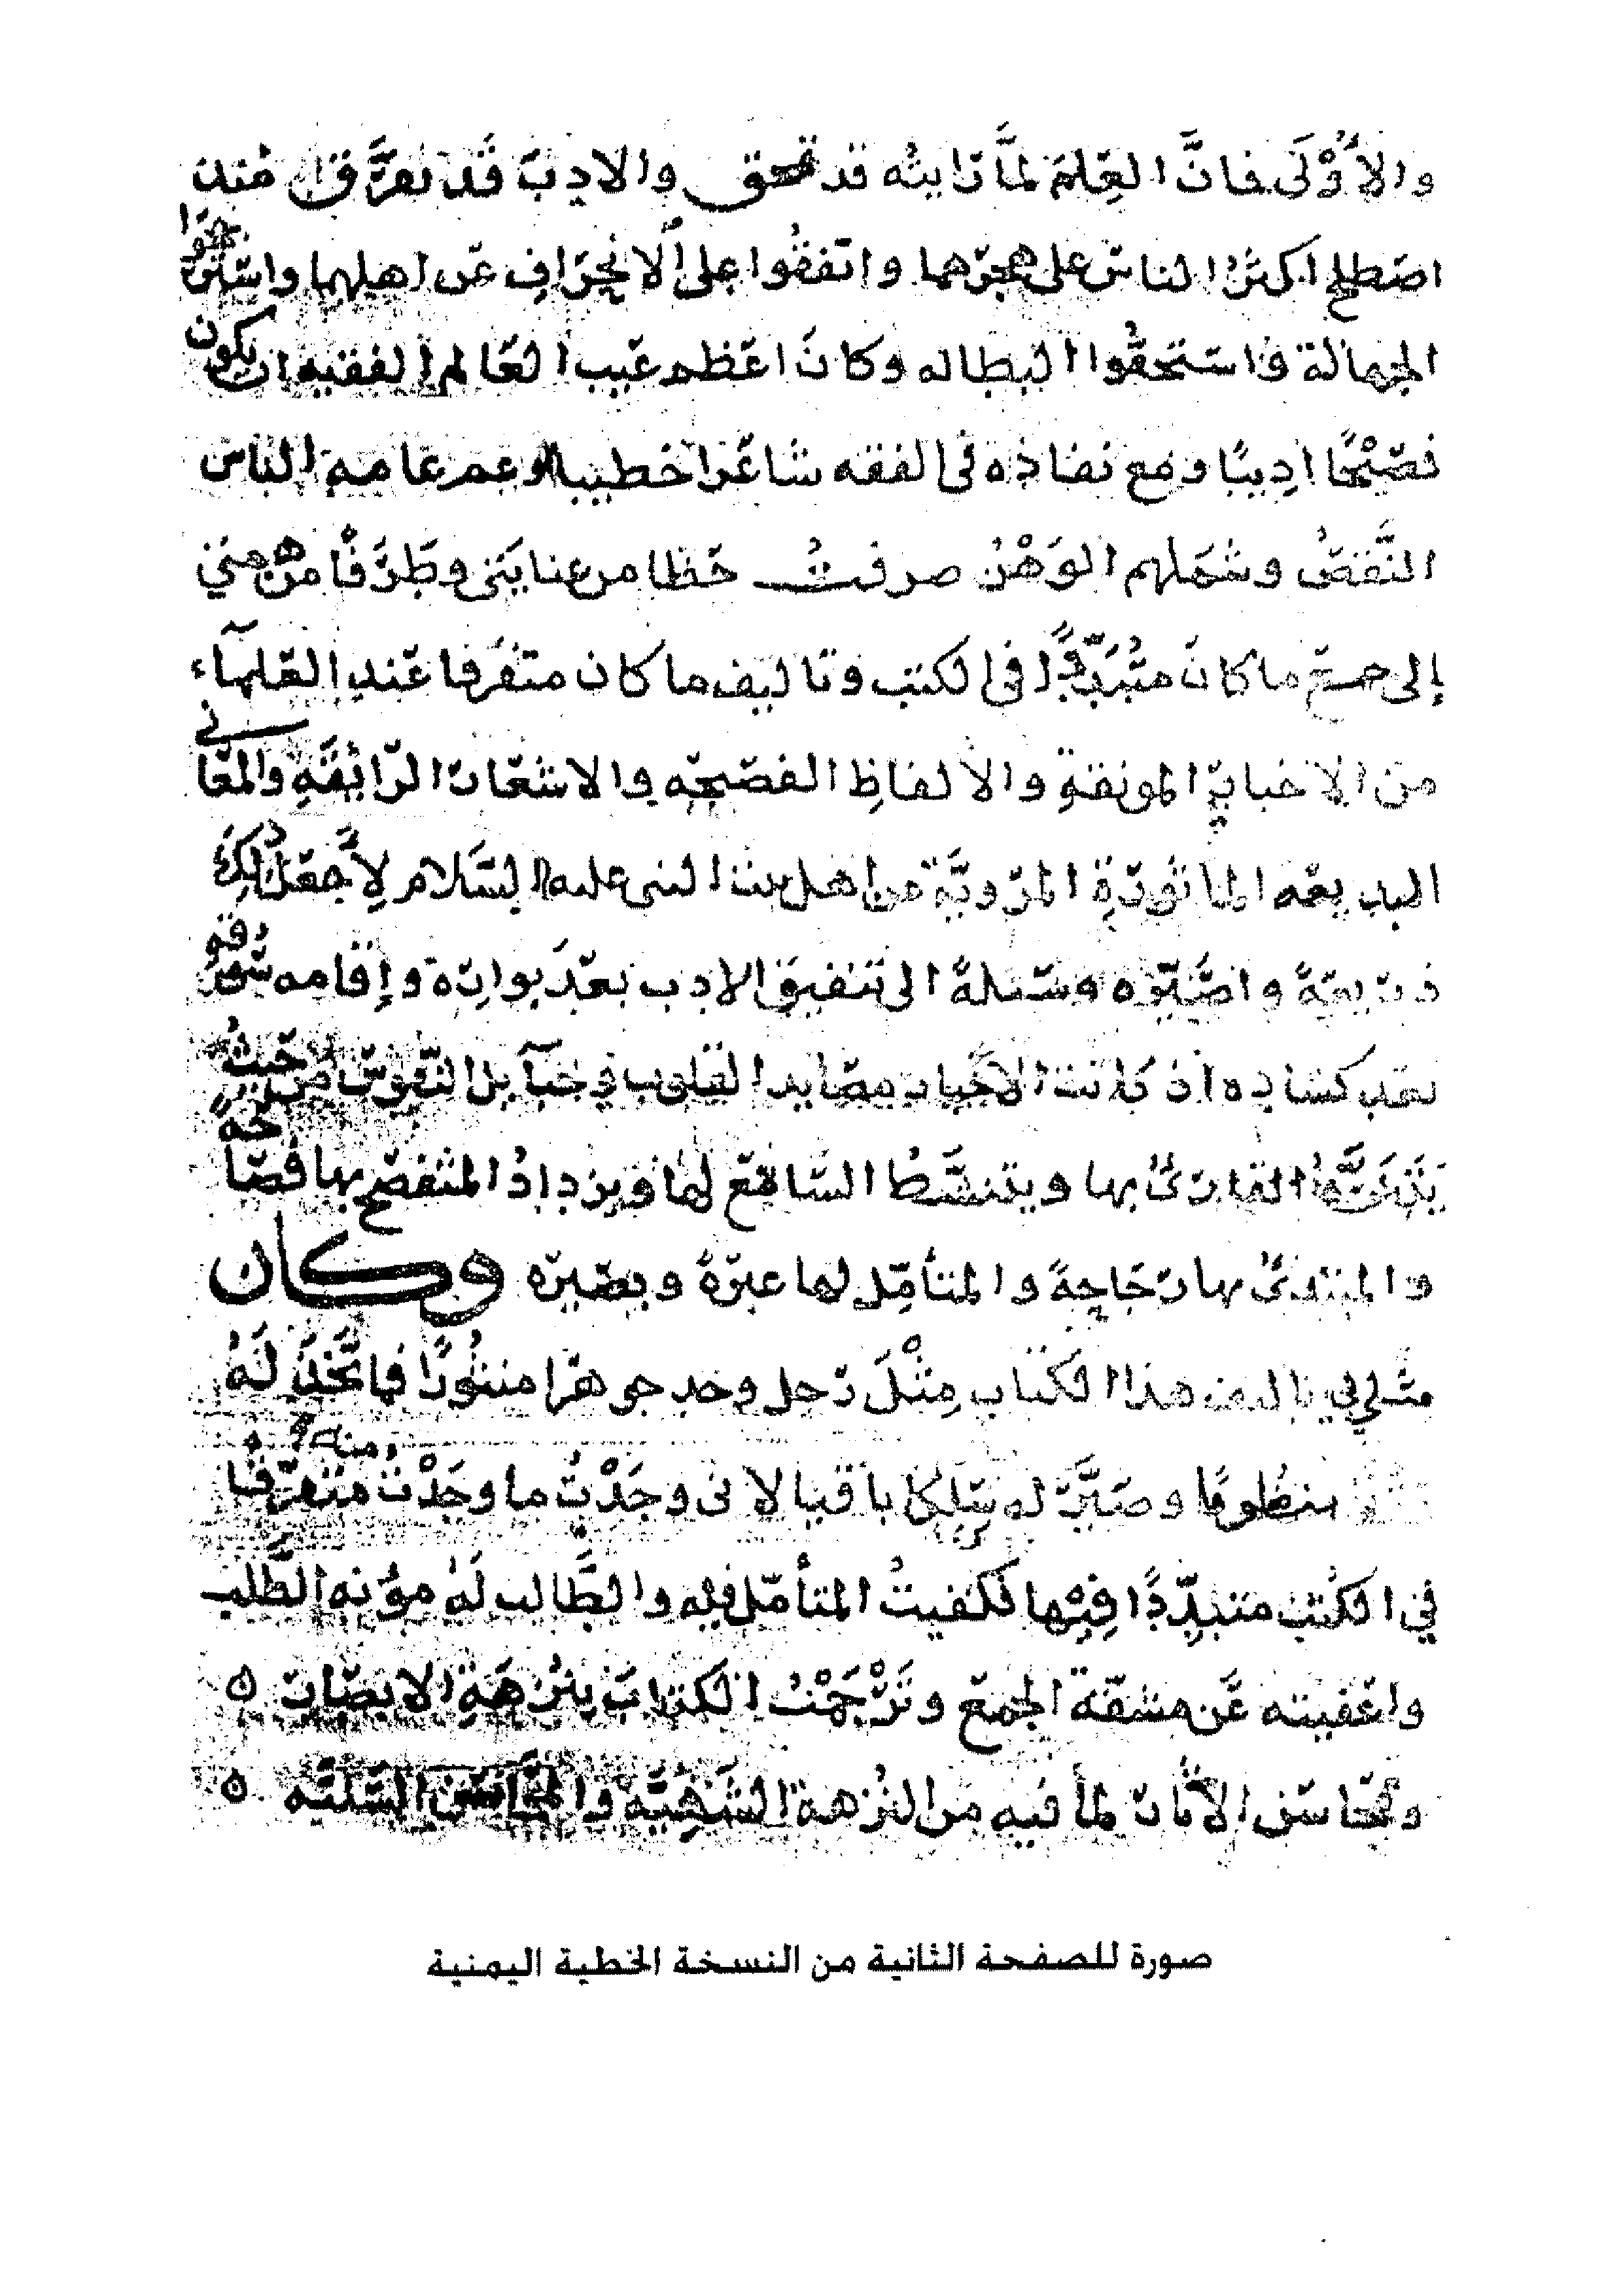 والأُوْلَى فانَّ العِلمَ لمَّا رَايتُه قد تمحق والادبَ قَد تفرَّق منذ
اصطلح اكثرُ الناس على هجرهما واتّفقُوا على الانحرافِ عن اهلهما واسترجحوا
الجهالة فاستحقُّوا البطاله وكانَ اعظم عيب العالم الفقيه ان يكون
فصيْحًا ادِيبًا ومع نفاذه فى الفقه شاعرا خطيبا وعم عامه الناس
النَّقصُ وشملهم الوَهْنُ صرفتُ حَظا من عنايتى وطَرَفًا من همتي
إلى جمع ما كانَ متُبَدّدًا فى الكتب وتاليف ما كان متفَرقا عند العلمآء
من الاخبارِ المونقةِ والالفاظِ الفصيحه والاشعار الرائقَةِ والمعاني
البديعه الماثورةِ المرويَّة عن اهل بيت النبى عليه السَّلام لِأَجعَل ذلِكَ
ذريعةً وَوَسيلةً الى تنفيقِ الادب بعدَ بواره وإقامه سُوقه
بعد كساده اذ كانت الاخبار مصايد القلوب في حبآيل النّفوس من حَيثُ
القارئُ بها ويتنشَّطُ السّامعُ لها ويزدادُ المتفصّح بها فصَاحَةً
بها رَجَاجةً والمتأمِّل لها عبرةً وبصيرة وكان
مثلي في تاليف هذا الكتاب مِثْلَ رَجل وجد جوهرا منثُورًا فاتَّخذَ لَهُ
منظُومًا وصَيَّرَ له سِلكا باقيا لانى وجَدْتُ ما وجَدْت منه متفرقا
في الكُتُب متبدِّدًا فِيْها فكفيتُ المتأمّل فيه والطَّالب لَهُ مؤُنه الطَّلب
واعفيته عَن مشقّة الجمع وتَرْجَمْتُ الكتابَ بنُزهَةِ الابصَار ٥
ومحاسن الآثار لما فيه من النُزهة الشَهِيَّة والمحاسن السَّنيَّه ٥
صورة للصفحة الثانية من النسخة الخطية اليمنية